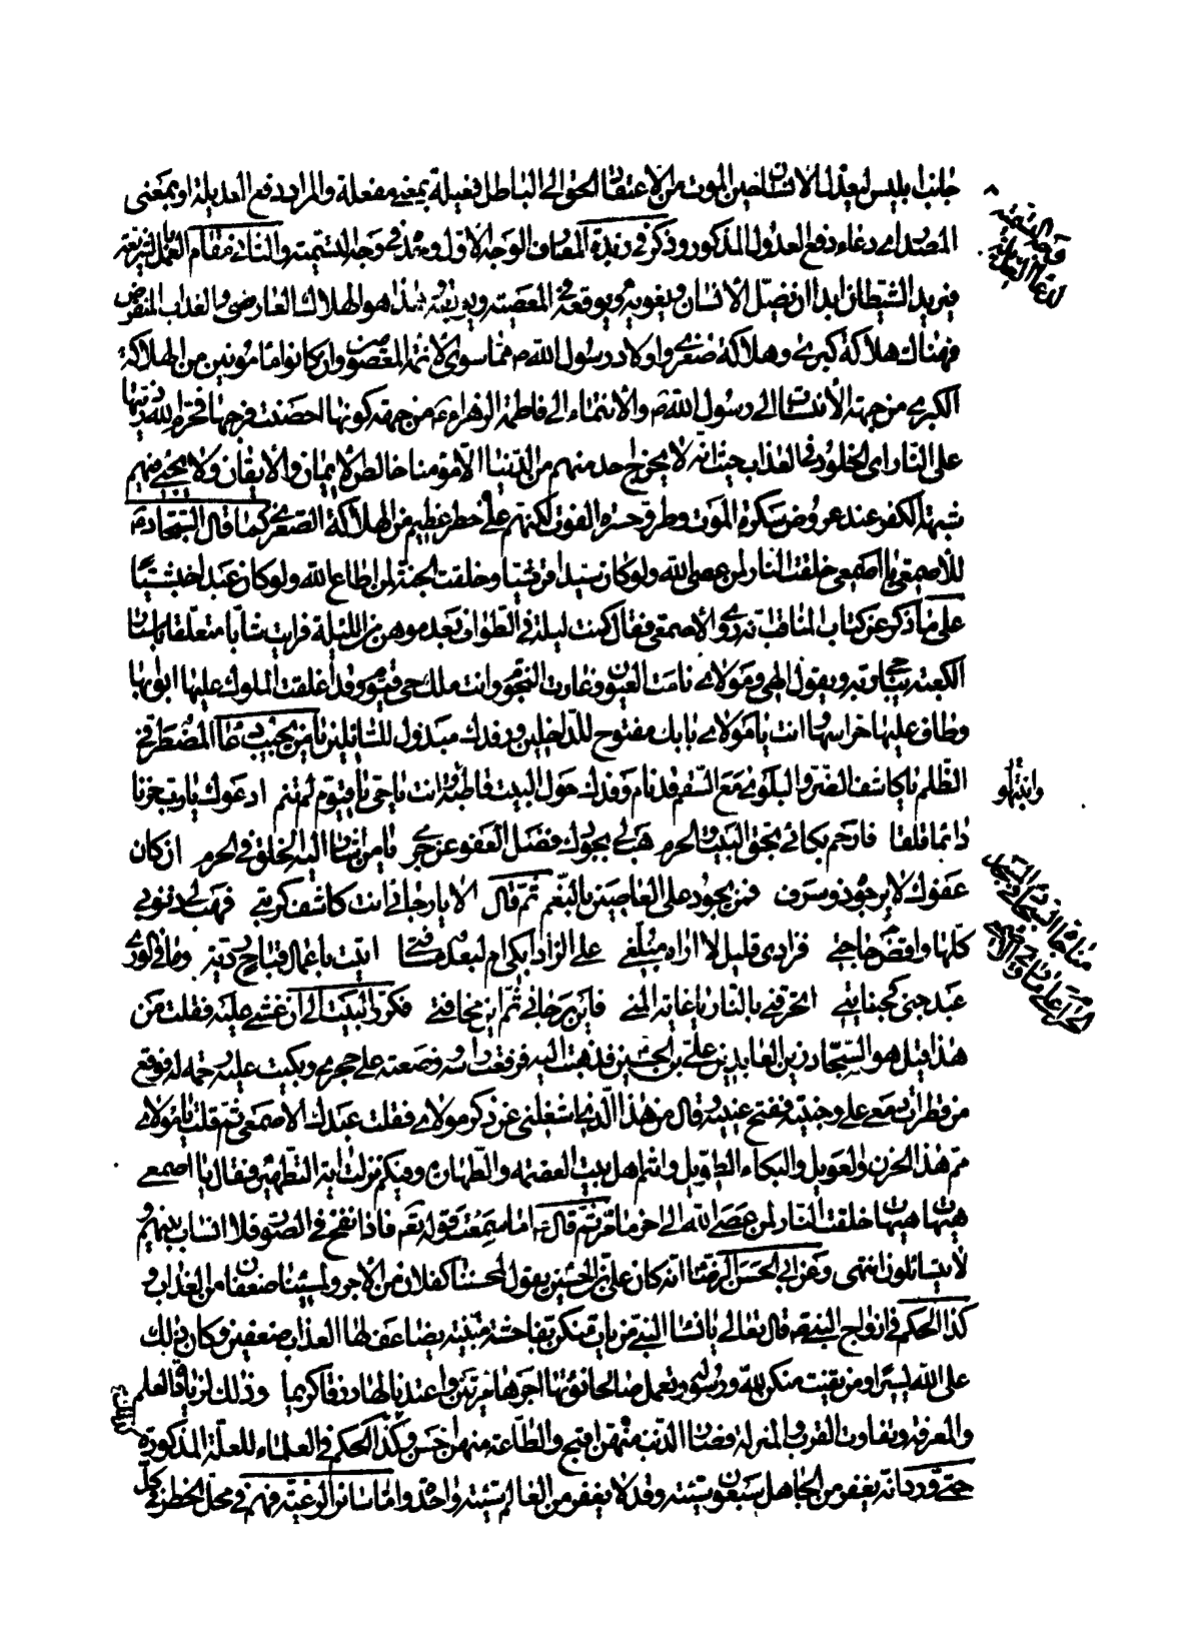 جانب ابليس ليعدل الانسان حين الموت من الاعتقاد الحق الى الباطل فعيلة بمعنى مفعلة والمراد دفع العديلة او بمعنى
المصدر اى دعاء دفع العدول المذكور وذكر فى زبدة المعارف الوجه الاول وجه التسمية والثانى مقام العمل
فيريد الشيطان ابدا ان يضل الانسان ويغويه ويوقعه فى المعصية هذا هو الهلاك العارضى والعذاب
فهناك هلاكة كبرى وهلاكة صغرى واولاد رسول الله ص مما سوى الائمة المعصومين وان كانوا مأمونين من الهلاكة
الكبرى من جهة الانتساب الى رسول الله ص والانتماء الى فاطمة الزهراء ع من جهة كونها احصنت فرجها فحرم الله ذريتها
على النار اى الخلود فى العذاب حيث انه لا يخرج احد منهم من الدنيا الا مؤمنا خالص الايمان والايقان ولا منهم
شبهة الكفر عند عروض سكرة الموت وطرو حسرة الفوت لكنهم على خطر عظيم من الهلاكة الصغرى كما قال السجاد ع
للاصمعى يا اصمعى خلقت النار لمن عصى الله ولو كان سيدا قرشيا وخلقت الجنة لمن اطاع الله ولو كان عبدا حبشيا
على ما ذكر عن كتاب المناقب روى الاصمعى فقال كنت ليلة فى الطواف بعد موهن من الليلة فرايت شابا متعلقا باستار
الكعبة ويقول الهى ومولاى نامت العيون وغارت النجوم وانت ملك حى قيوم وقد اغلقت الملوك عليها ابوابها
وطاف عليها حراسها انت يا مولاى بابك مفتوح للداخلين ورفدك مبذول للسائلين يا من يجيب دعا المضطر فى
الظلم يا كاشف الضر والبلوى مع السقم قد نام وفدك حول البيت قاطبة وانت يا حى يا قيوم لم تنم ادعوك يا رب حزنا
دائما قلقا فارحم بكائى بحق البيت والحرم هب لى بجودك فضل العفو عن جرمى يا من اشار اليه الخلق فى الحرم ان كان
عفوك لا يرجوه ذو سرف فمن يجود على العاصين بالنعم ثم قال الا يا رجائى انت كاشف كربتى فهب لى ذنوبى
كلها واقض حاجتى فزادى قليل لا اراه مبلغى على الزاد ابكى ام لبعد مسافتى اتيت باعمال قباح ردية وما فى الورى
عبد جنى كجنايتى اتحرقنى بالنار يا غاية المنى فاين رجائى ثم اين مخافتى فكرر البيت الى ان غشى عليه فقلت من
هذا قيل هو السجاد زين العابدين على بن الحسين فذهبت اليه فرفعت راسه ووضعته على حجرى وبكيت عليه فوقع
من قطرات دمعى على وجنيته ففتح عينيه وقال من هذا الذى اشغلنى عن ذكر مولاى فقلت عبدك الاصمعى ثم قلت يا مولاى
مم هذا الحزن والعويل والبكاء الطويل وانتم اهل بيت العصمة والطهارة وفيكم نزلت اية التطهير فقال يا اصمعى
هيهات هيهات خلقت النار لمن عصى الله الى اخر ما مر ثم قال ع اما سمعت قوله تع فاذا نفخ فى الصور فلا انساب بينهم و
لا يتسائلون انتهى وعن ابى الحسن الرضا انه كان على بن الحسين يقول لمحسننا كفلان من الاجر ولمسيئنا ضعفان من العذاب و
كذا الحكم فى ازواج النبى ص قال تعالى يا نساء النبى من يات منكن بفاحشة مبينة يضاعف لها العذاب ضعفين وكان ذلك
على الله يسيرا ومن يقنت منكن لله ورسوله وتعمل صالحا نؤتها اجرها مرتين واعتدنا لها رزقا كريما وذلك لزيادة العلم
والمعرفة وتفاوت القرب والمنزلة فصار الذنب منهن اقبح والطاعة منهن احسن وكذا الحكم فى العلماء للعلة المذكورة
حتى ورد انه يغفر من الجاهل سبعون سيئة وقد لا يغفر من العالم سيئة واحدة واما سائر الرعية فهم فى محل الخطر كل
وجه التسمية
لدعاء العديلة
وانتبهوا
مناجاة السجاد